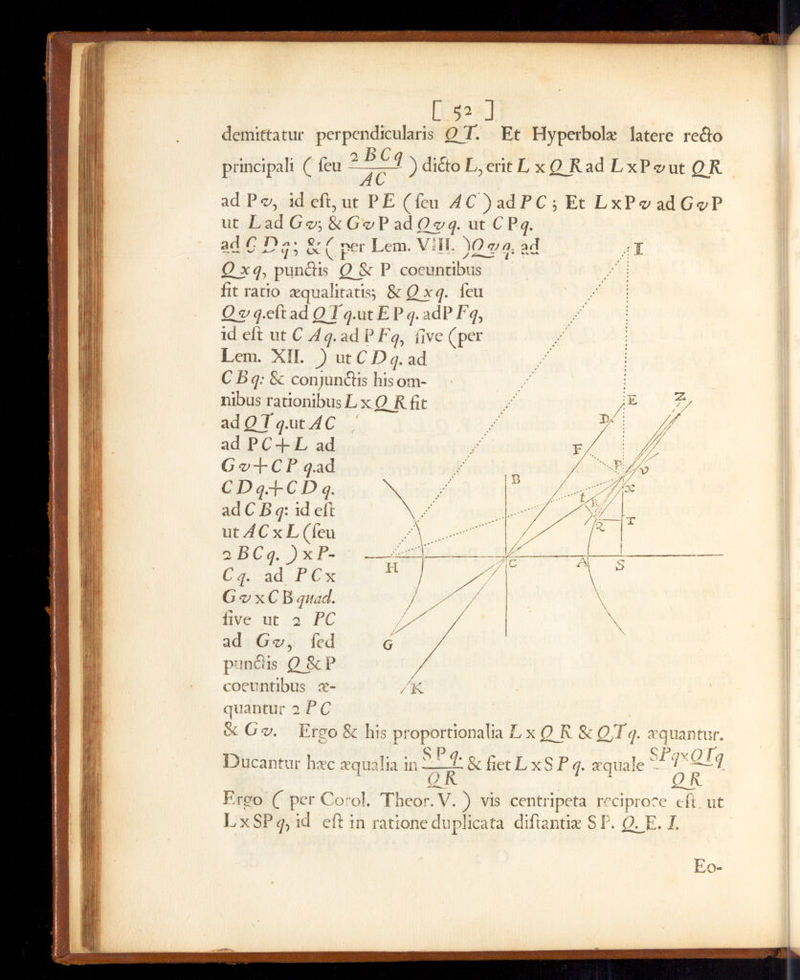 [ 52 ]
demittatur perpendicularis QT. Et Hyperbolæ latere recto
principali ( seu 2BCq / AC ) dicto L, erit L x QR ad L x P v ut QR
ad P v, id est, ut PE ( seu AC ) ad PC ; Et L x P v ad G v P
ut L ad G v; & G v P ad Q v q. ut C P q.
ad C D q; & ( per Lem. VIII. ) Q v q. ad
Q x q, punctis Q & P coeuntibus
fit ratio æqualitatis; & Q x q. seu
Q v q. est ad QT q. ut E P q. ad P F q,
id est ut C A q. ad P F q, sive (per
Lem. XII. ) ut C D q. ad
C B q: & conjunctis his om-
nibus rationibus L x QR fit
ad QT q. ut AC
ad PC + L ad
G v + C P q. ad
C D q. + C D q.
ad C B q: id est
ut AC x L (seu
2 BC q. ) x P-
C q. ad PC x
G v x C B quad.
sive ut 2 PC
ad G v, sed
punctis Q & P
coeuntibus æ-
quantur 2 P C
& G v. Ergo & his proportionalia L x QR & QT q. æquantur.
Ducantur hæc æqualia in SPq. / QR & fiet L x S P q. æquale SPq x QTq / QR.
Ergo ( per Corol. Theor. V. ) vis centripeta reciproce est ut
L x SP q, id est in ratione duplicata distantiæ S P. Q. E. I.
Eo-
I
Z
E
D
F
P
v
B
x
t
R
Q
T
H
C
A
S
G
K